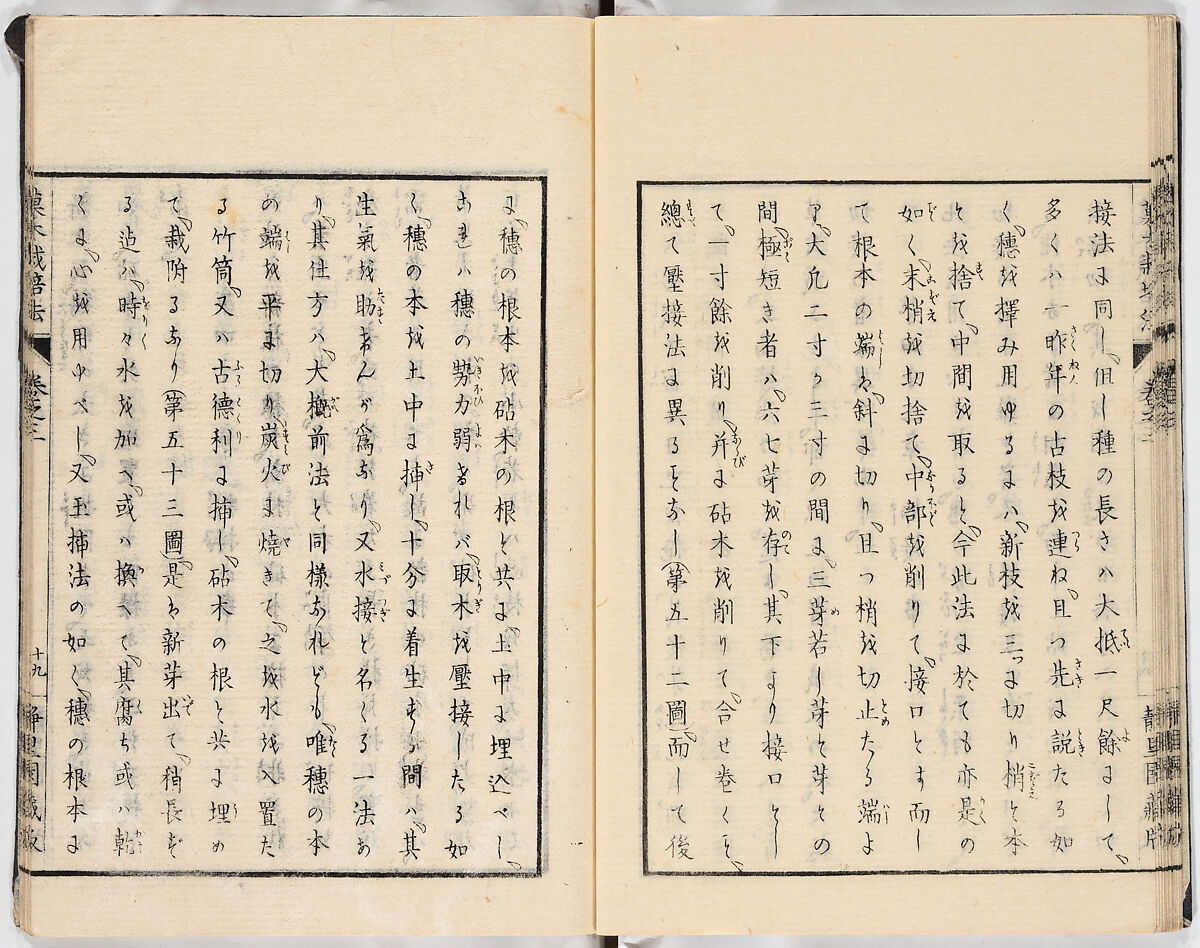 接法に同し、但し種の長さハ大抵一尺餘にして、
多くハ昨年の古枝を連ね、且つ先に説たる如
く、穂を擇み用ゆるにハ、新枝を三つに切り、梢と本
とを捨て、中間を取ると、今此法に於ても亦是の
如く、末梢を切捨て、中部を削りて、接口とす而し
て根本の端は、斜に切り、且つ梢を切止たる端よ
り、大凡二寸ゟ三寸の間に、三芽若し芽と芽との
間、極短き者ハ、六七芽を存し、其下より接口とし
て、一寸餘を削り、并に砧木を削りて、合せ巻くこと、
總て壓接法に異ることなし(第五十二圖)而して後
に、穂の根本を砧木の根と共に、土中に埋込べし、
これハ穂の勢力弱けれバ、取木を壓接したる如
く、穂の本を土中に挿し、十分に着生する間ハ、其
生氣を助けんが爲なり、又水接と名くる一法あ
り、其仕方ハ、大概前法と同様なれども、唯穂の本
の端を平に切り、炭火に焼きて、之を水を入置た
る竹筒、又ハ古德利に挿し、砧木の根と共に埋め
て、栽附るなり(第五十三圖)是は新芽出て、稍長ず
る迠ハ、時々水を加へ、或ハ換へて、其腐ち或ハ乾
くに、心を用ゆべし、又玉挿法の如く、穂の根本に
菓木栽培法 卷之三 十九 静里園藏版